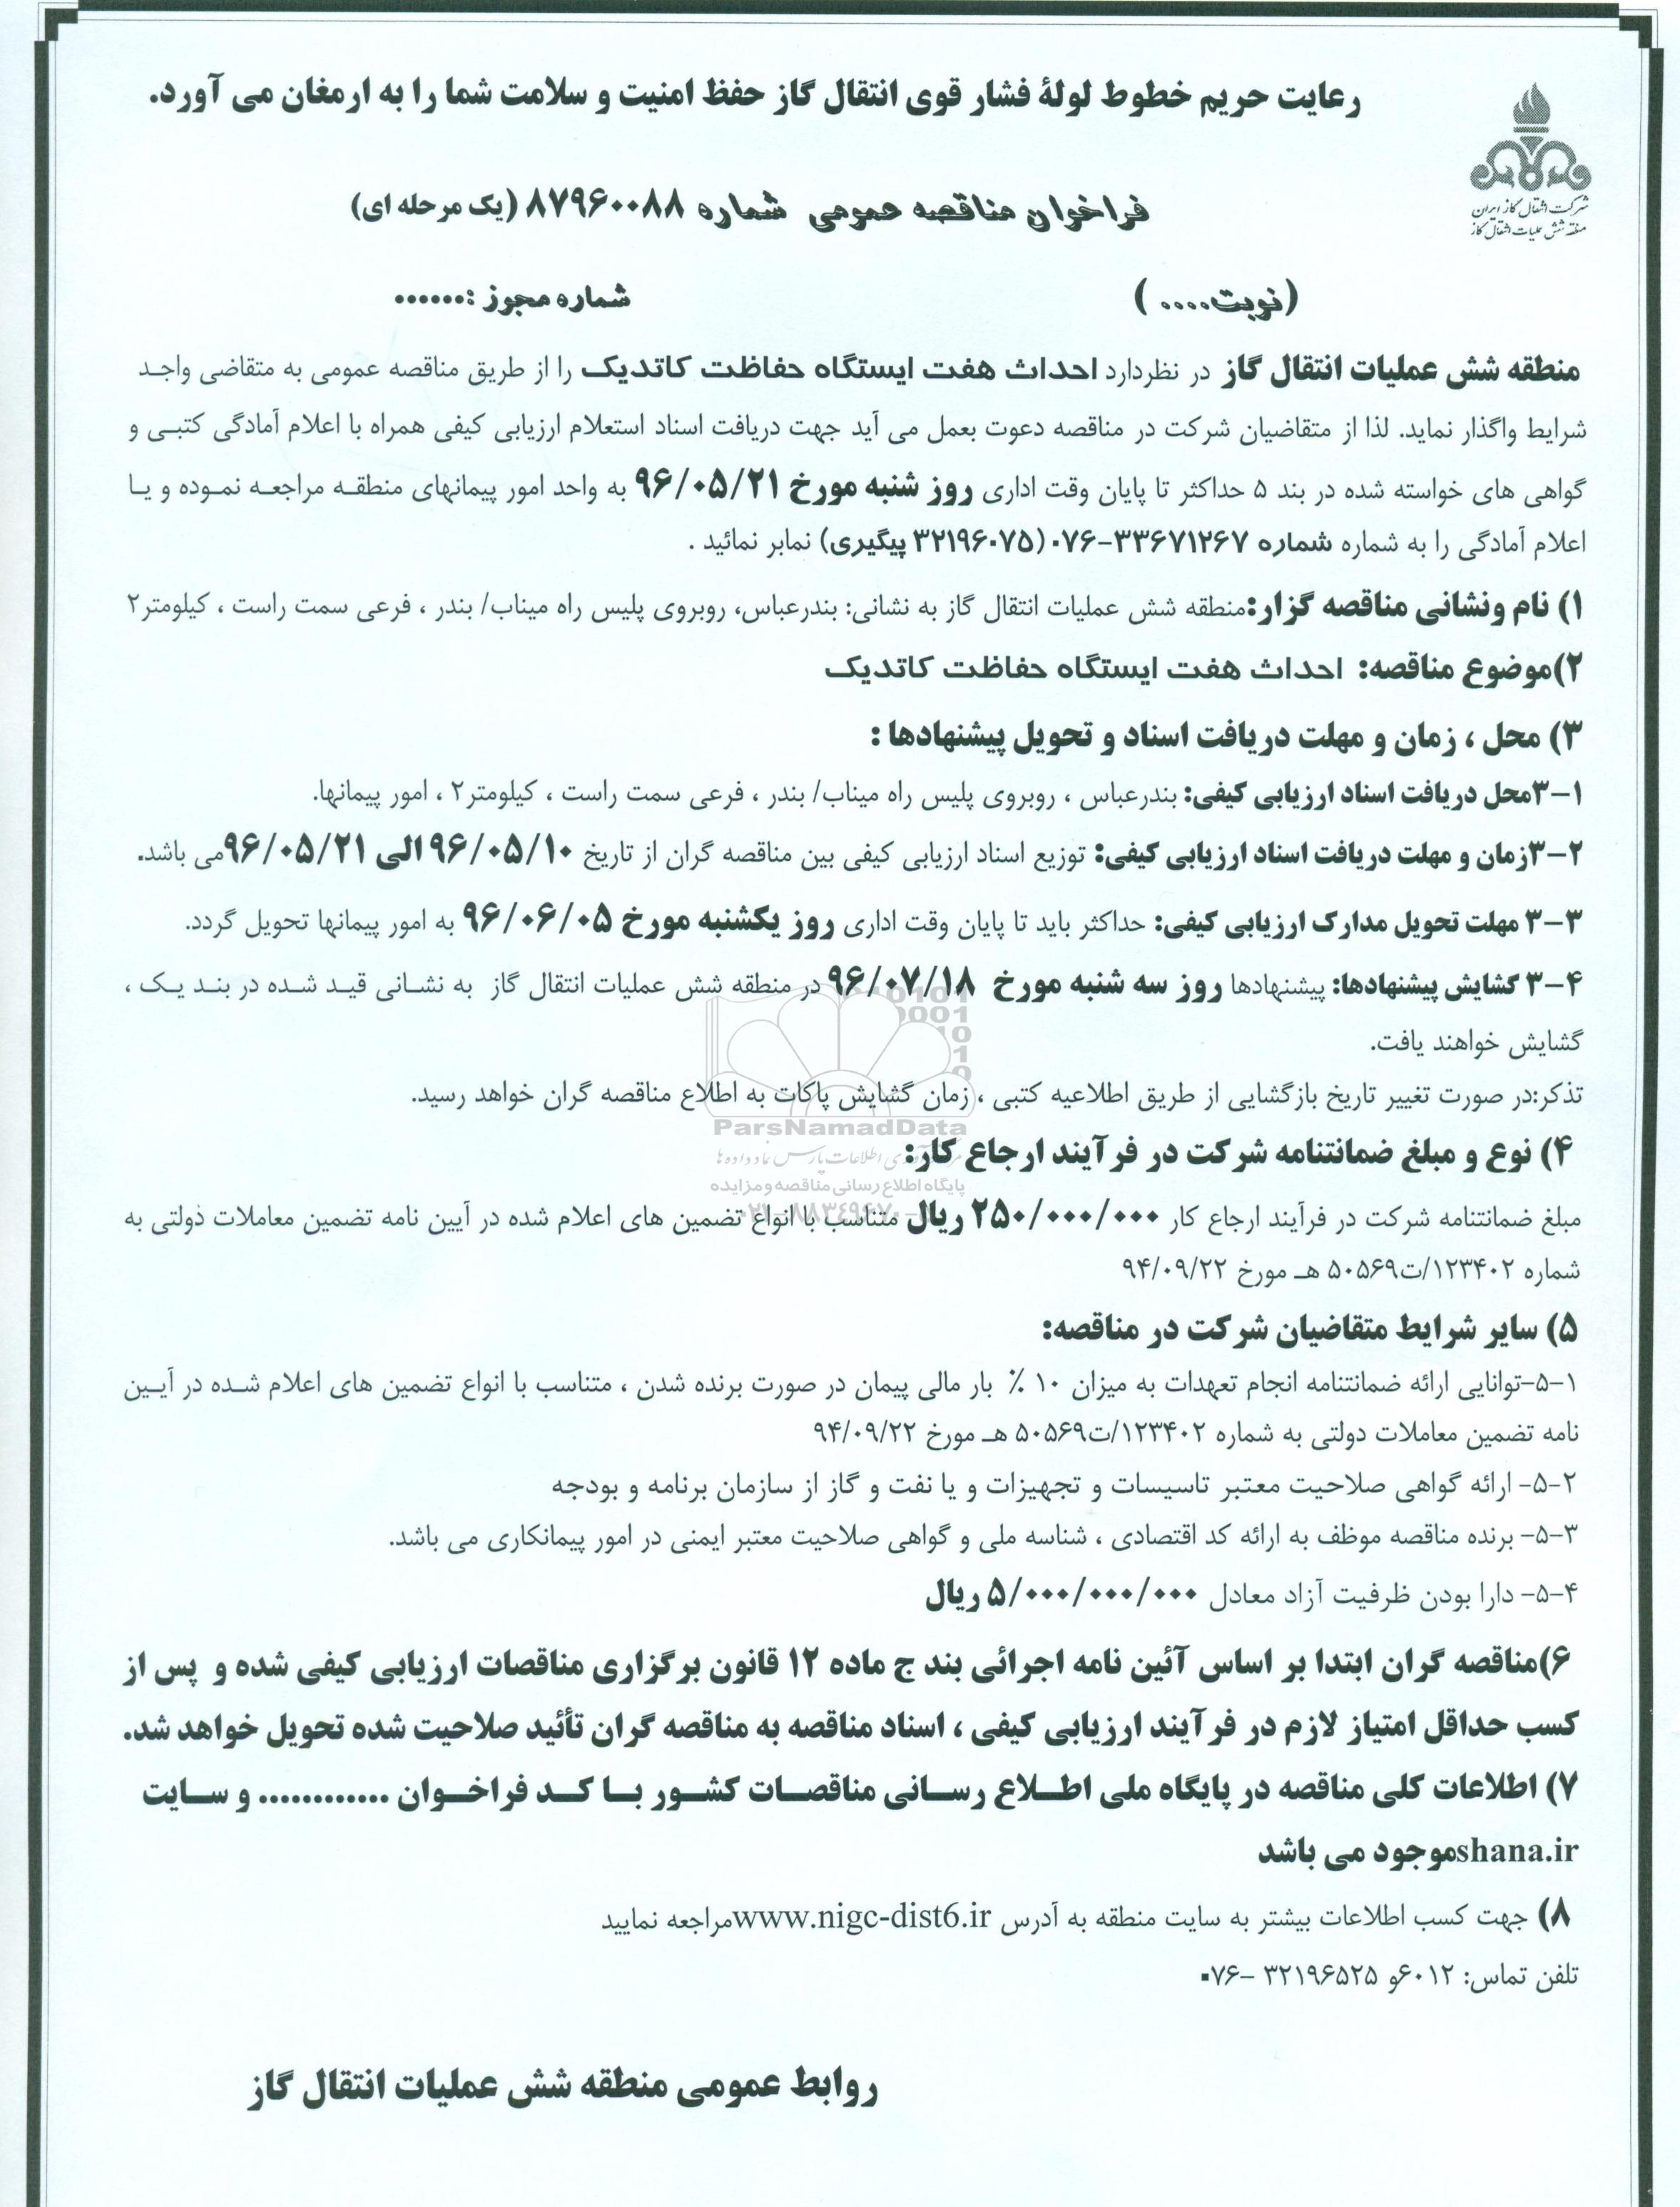 رعایت حریم خطوط لولهٔ فشار قوی انتقال گاز حفظ امنیت و سلامت شما را به ارمغان می آورد.
شرکت انتقال گاز ایران
منطقه شش عملیات انتقال گاز
فراخوان مناقصه عمومی شماره ۸۷۹۶۰۰۸۸ (یک مرحله ای)
(نوبت.... ) شماره مجوز :......
منطقه شش عملیات انتقال گاز در نظردارد احداث هفت ایستگاه حفاظت کاتدیک را از طریق مناقصه عمومی به متقاضی واجد
شرایط واگذار نماید. لذا از متقاضیان شرکت در مناقصه دعوت بعمل می آید جهت دریافت اسناد استعلام ارزیابی کیفی همراه با اعلام آمادگی کتبی و
گواهی های خواسته شده در بند ۵ حداکثر تا پایان وقت اداری روز شنبه مورخ ۹۶/۰۵/۲۱ به واحد امور پیمانهای منطقه مراجعه نموده و یا
اعلام آمادگی را به شماره شماره ۳۳۶۷۱۲۶۷-۰۷۶ (۳۲۱۹۶۰۷۵ پیگیری) نمابر نمائید .
۱) نام ونشانی مناقصه گزار:منطقه شش عملیات انتقال گاز به نشانی: بندرعباس، روبروی پلیس راه میناب/ بندر ، فرعی سمت راست ، کیلومتر۲
۲)موضوع مناقصه: احداث هفت ایستگاه حفاظت کاتدیک
۳) محل ، زمان و مهلت دریافت اسناد و تحویل پیشنهادها :
۳-۱محل دریافت اسناد ارزیابی کیفی: بندرعباس ، روبروی پلیس راه میناب/ بندر ، فرعی سمت راست ، کیلومتر۲ ، امور پیمانها.
۳-۲زمان و مهلت دریافت اسناد ارزیابی کیفی: توزیع اسناد ارزیابی کیفی بین مناقصه گران از تاریخ ۹۶/۰۵/۱۰ الی ۹۶/۰۵/۲۱می باشد.
۳-۳ مهلت تحویل مدارک ارزیابی کیفی: حداکثر باید تا پایان وقت اداری روز یکشنبه مورخ ۹۶/۰۶/۰۵ به امور پیمانها تحویل گردد.
۳-۴ گشایش پیشنهادها: پیشنهادها روز سه شنبه مورخ ۹۶/۰۷/۱۸ در منطقه شش عملیات انتقال گاز به نشانی قید شده در بند یک ،
گشایش خواهند یافت.
تذکر:در صورت تغییر تاریخ بازگشایی از طریق اطلاعیه کتبی ، زمان گشایش پاکات به اطلاع مناقصه گران خواهد رسید.
ParsNamadData
۴) نوع و مبلغ ضمانتنامه شرکت در فرآیند ارجاع کار:
پایگاه اطلاع رسانی مناقصه و مزایده
مبلغ ضمانتنامه شرکت در فرآیند ارجاع کار ۲۵۰/۰۰۰/۰۰۰ ریال متناسب با انواع تضمین های اعلام شده در آیین نامه تضمین معاملات دولتی به
شماره ۱۲۳۴۰۲/ت۵۰۵۶۹ هـ مورخ ۹۴/۰۹/۲۲
۵) سایر شرایط متقاضیان شرکت در مناقصه:
۵-۱-توانایی ارائه ضمانتنامه انجام تعهدات به میزان ۱۰ ٪ بار مالی پیمان در صورت برنده شدن ، متناسب با انواع تضمین های اعلام شده در آیین
نامه تضمین معاملات دولتی به شماره ۱۲۳۴۰۲/ت۵۰۵۶۹ هـ مورخ ۹۴/۰۹/۲۲
۵-۲- ارائه گواهی صلاحیت معتبر تاسیسات و تجهیزات و یا نفت و گاز از سازمان برنامه و بودجه
۵-۳- برنده مناقصه موظف به ارائه کد اقتصادی ، شناسه ملی و گواهی صلاحیت معتبر ایمنی در امور پیمانکاری می باشد.
۵-۴- دارا بودن ظرفیت آزاد معادل ۵/۰۰۰/۰۰۰/۰۰۰ ریال
۶)مناقصه گران ابتدا بر اساس آئین نامه اجرائی بند ج ماده ۱۲ قانون برگزاری مناقصات ارزیابی کیفی شده و پس از
کسب حداقل امتیاز لازم در فرآیند ارزیابی کیفی ، اسناد مناقصه به مناقصه گران تأئید صلاحیت شده تحویل خواهد شد.
۷) اطلاعات کلی مناقصه در پایگاه ملی اطلاع رسانی مناقصات کشور با کد فراخوان ............ و سایت
shana.irموجود می باشد
۸) جهت کسب اطلاعات بیشتر به سایت منطقه به آدرس www.nigc-dist6.irمراجعه نمایید
تلفن تماس: ۶۰۱۲و ۳۲۱۹۶۵۲۵ -۰۷۶
روابط عمومی منطقه شش عملیات انتقال گاز